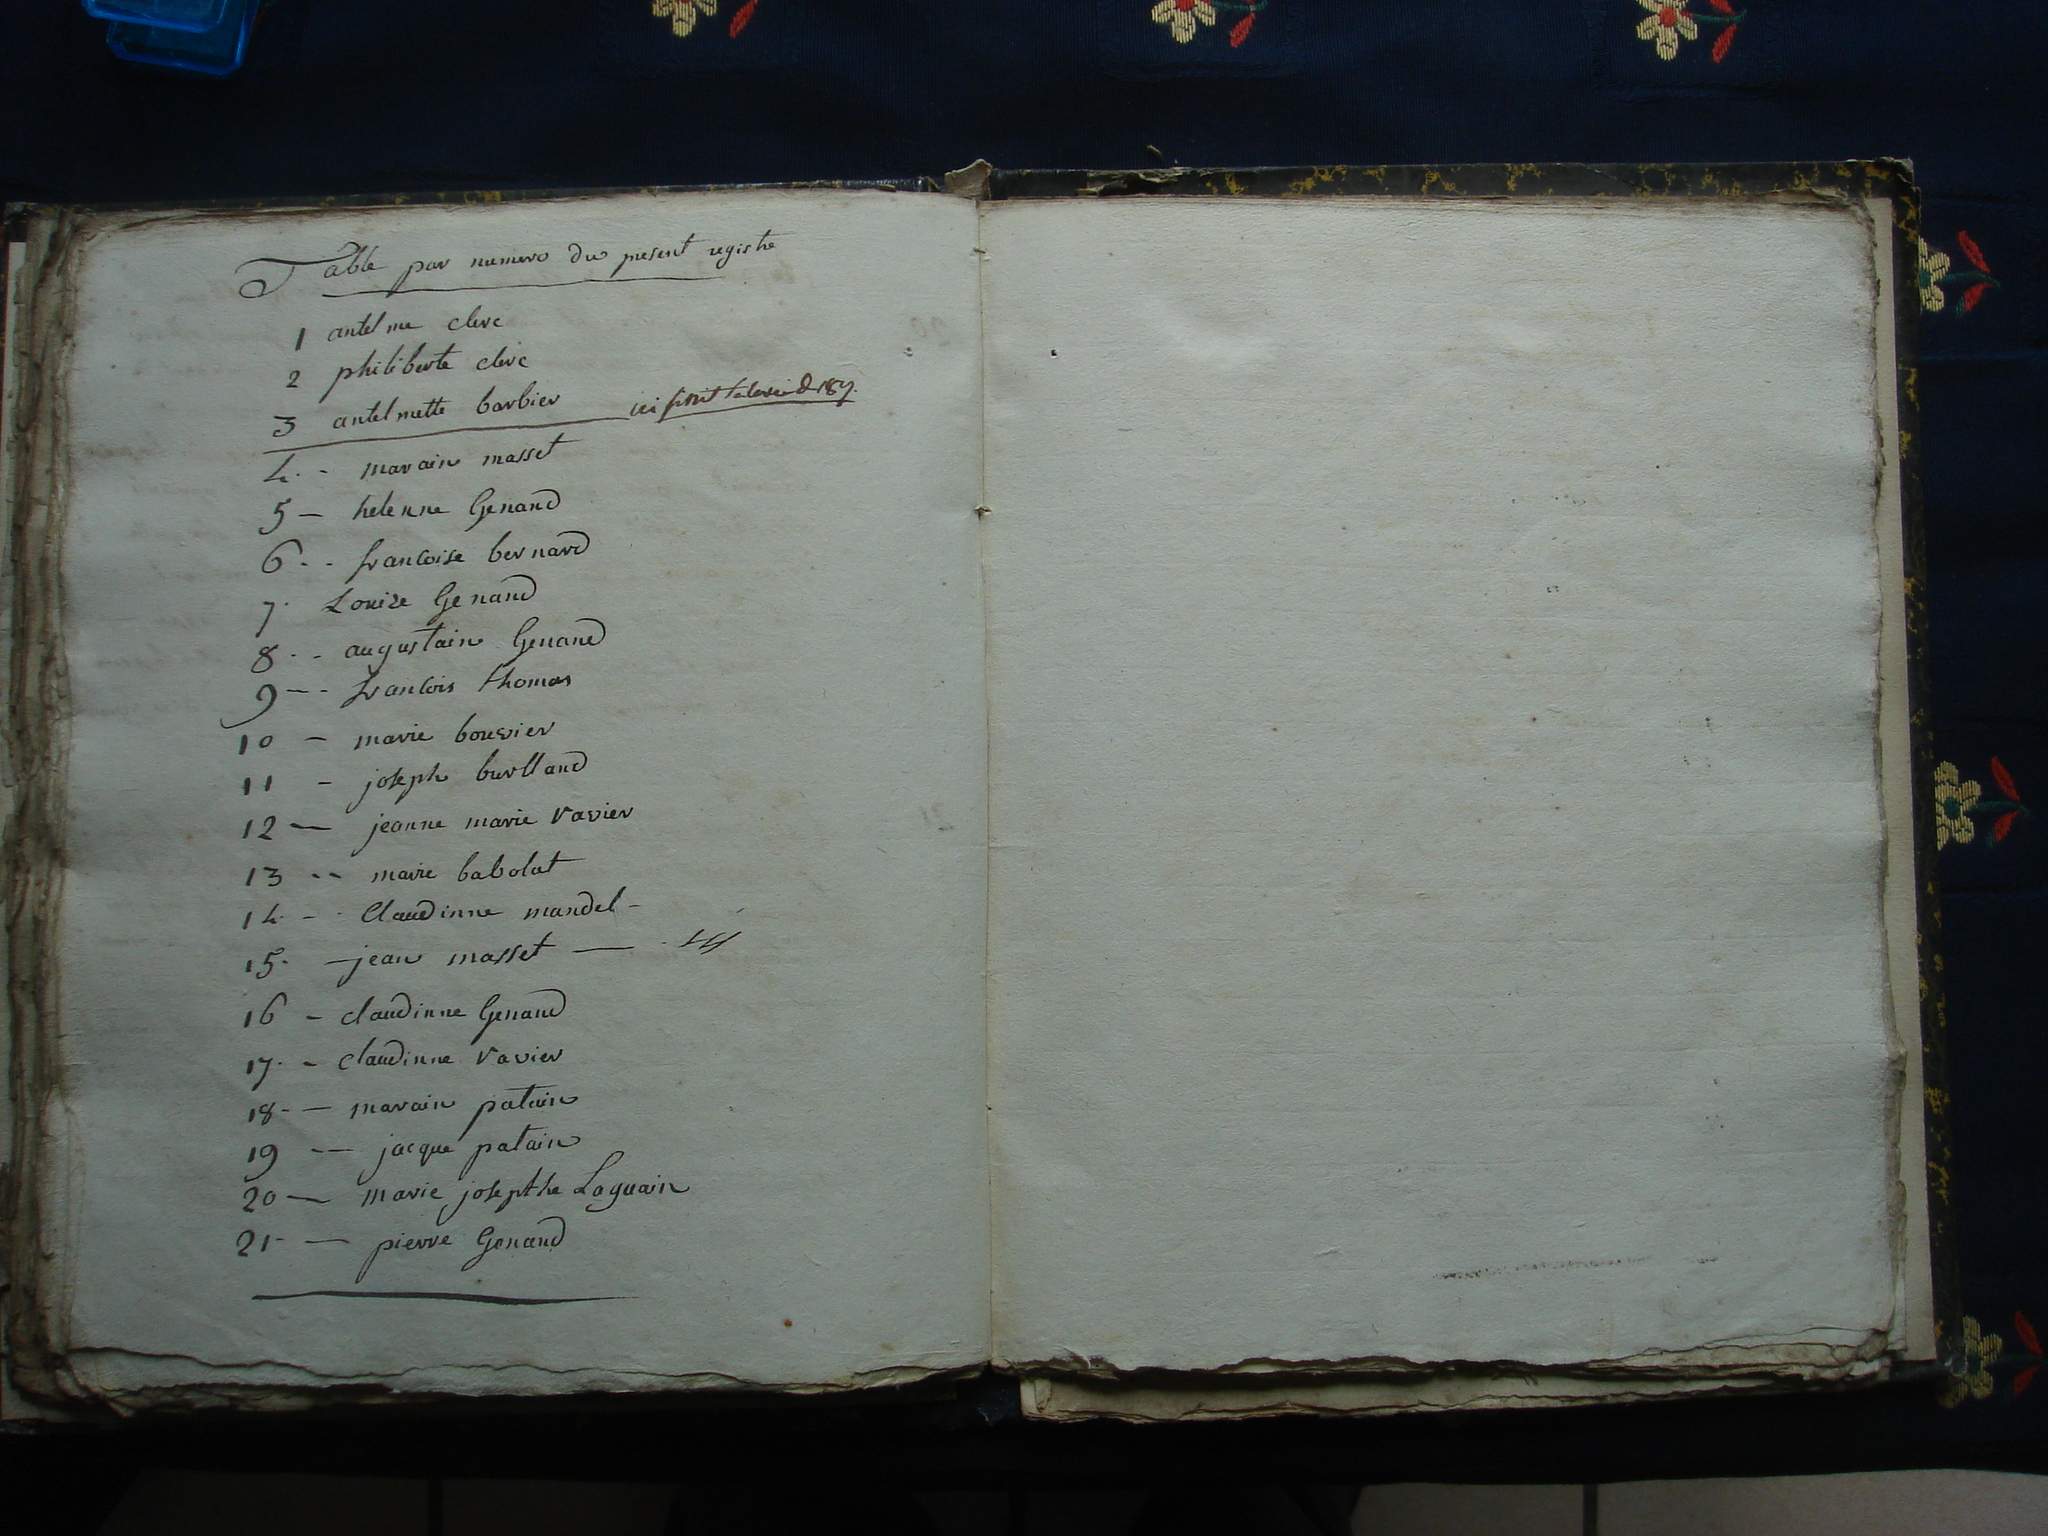 Table par numero du present registre
1 antelme clerc
2 philiberte clerc
3 antelmette barbier ici finit
4 - marain masset
5 - helenne Genand
6 - francoise bernard
7 Louise Genand
8 - augustain Genand
9 - francois thomas
10 - marie bouvier
11 - joseph burlland
12 - jeanne marie Ravier
13 - marie babolat
14 - Claudinne mandel -
15 - jean masset -
16 - claudinne Genand
17 - claudinne Ravier
18 - marain patain
19 - jacque patain
20 - marie josepthe Laguain
21 - pierre Genand